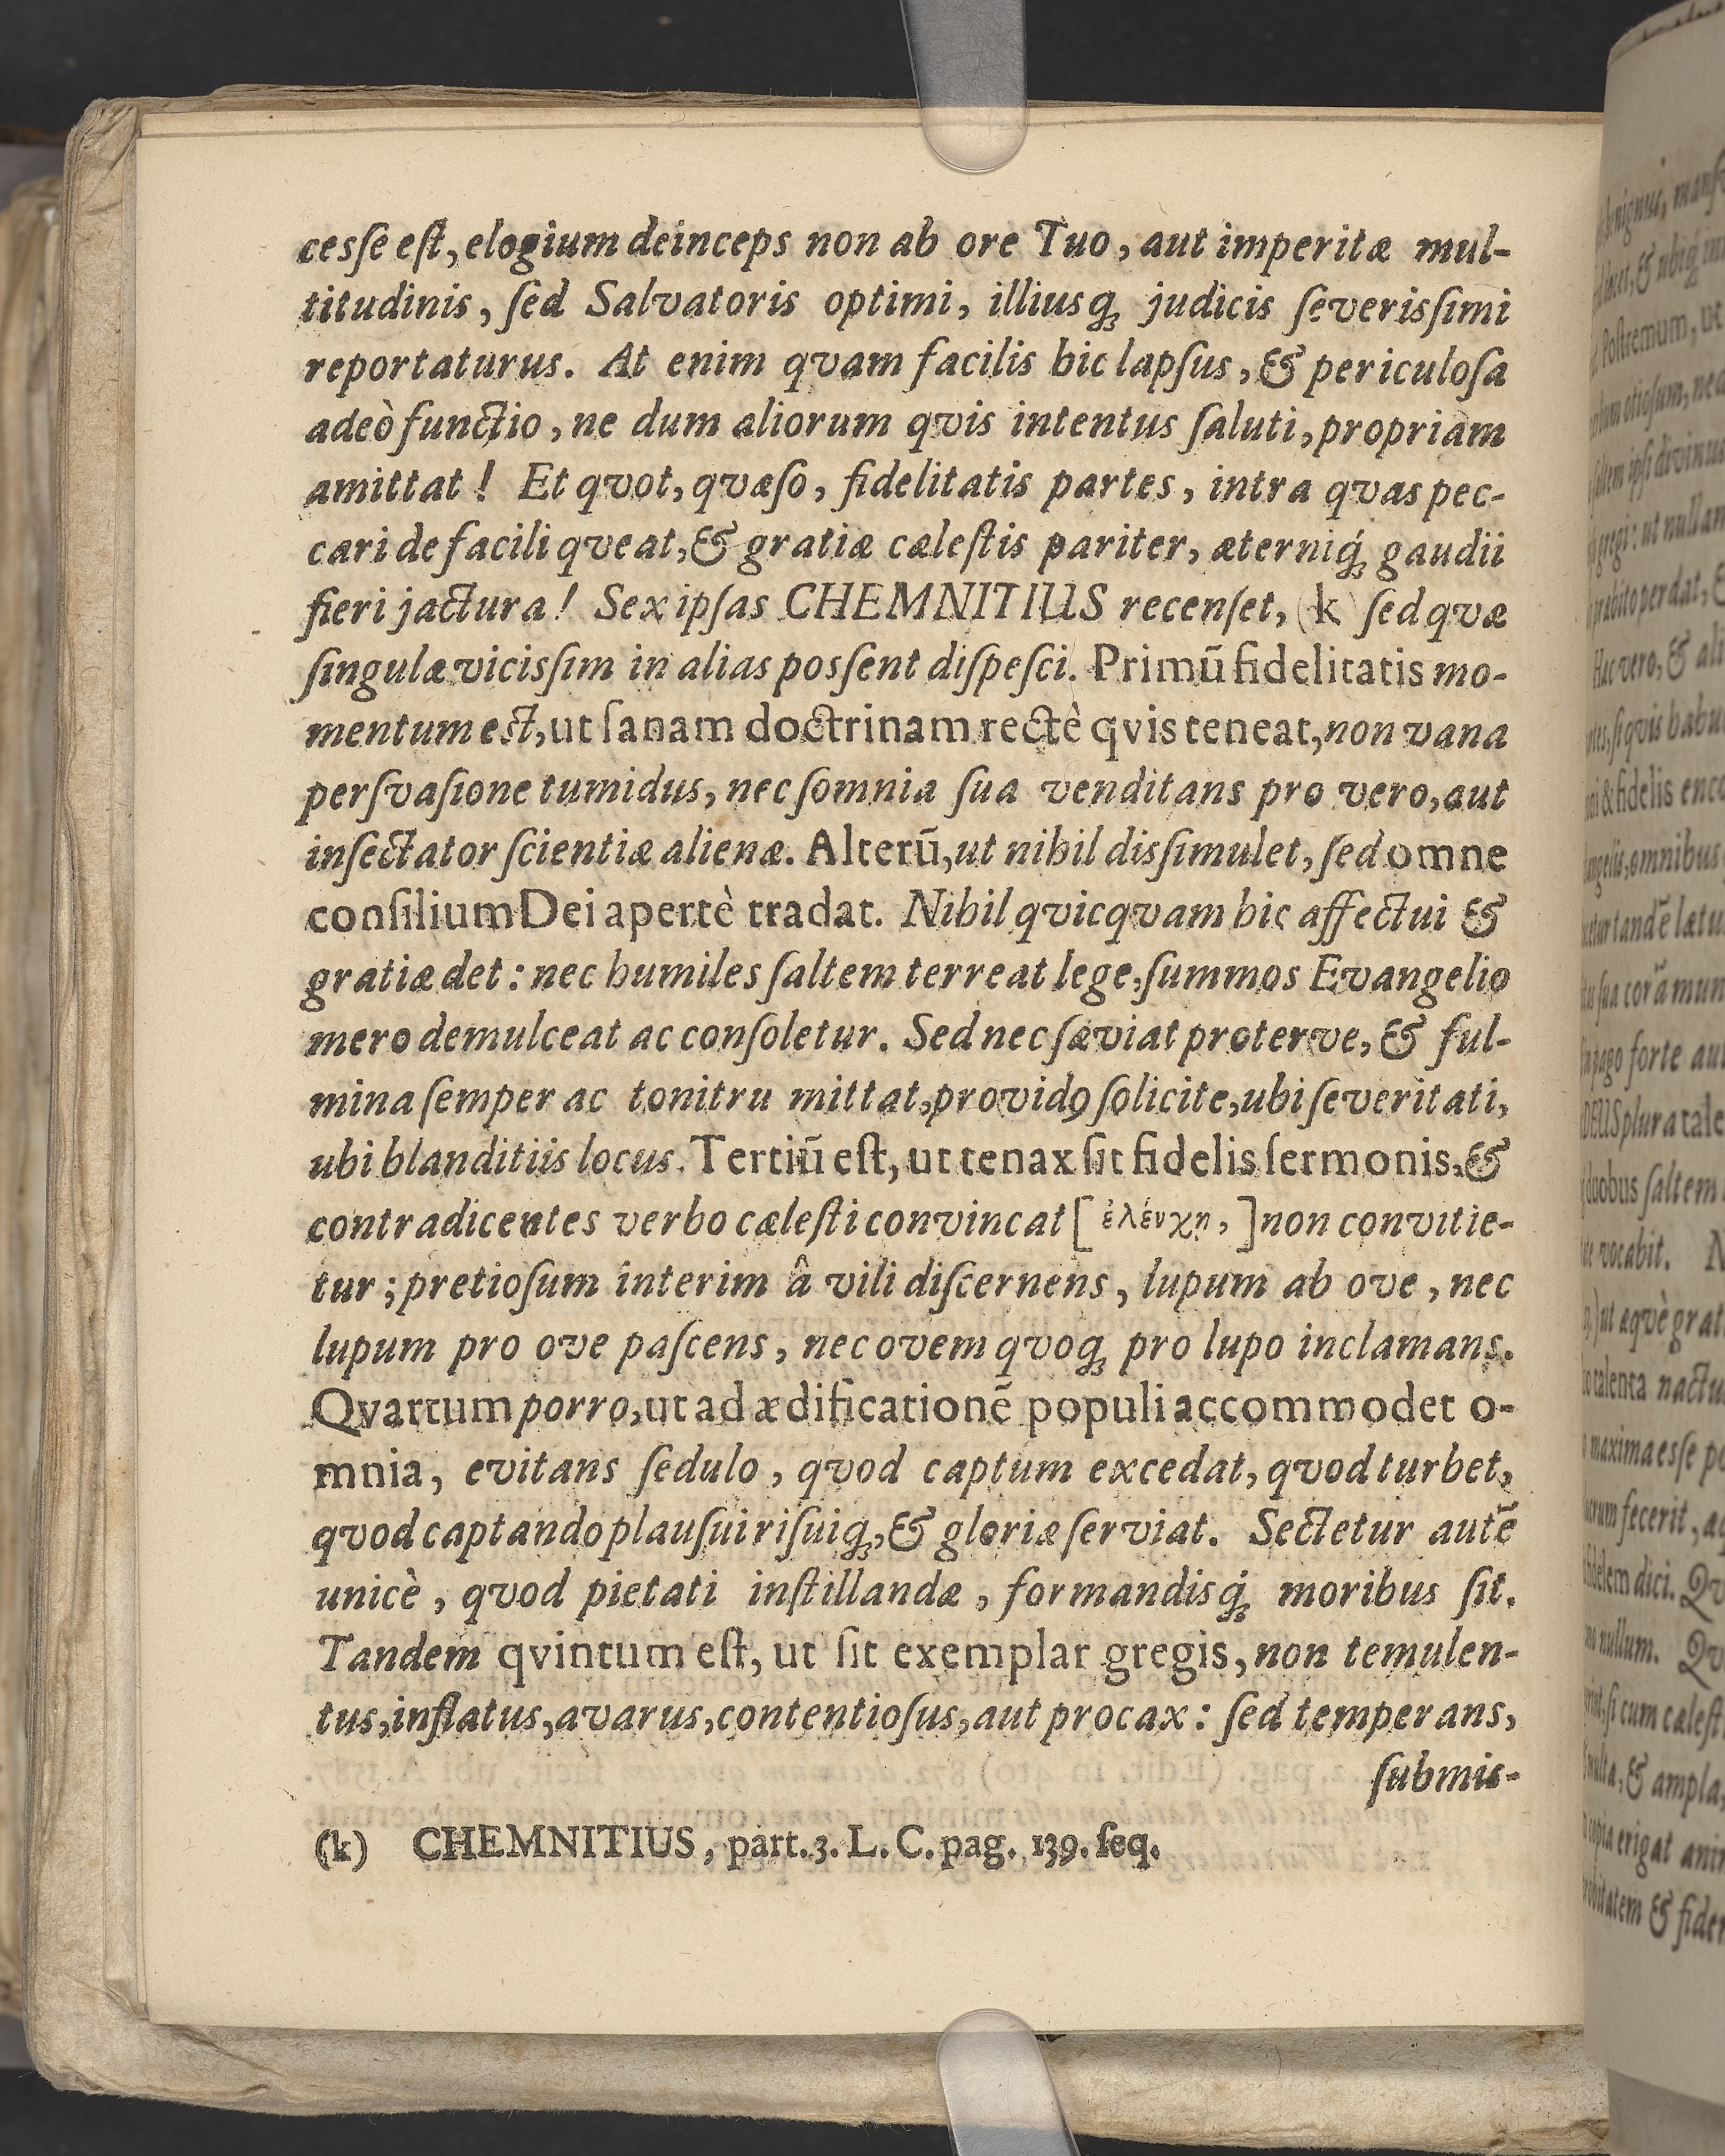 cesse est, elogium deinceps non ab ore Tuo, aut imperitæ mul-
titudinis, sed Salvatoris optimi, illiusq́; judicis severissimi
reportaturus. At enim qvam facilis hic lapsus, & periculosa
adeò functio, ne dum aliorum qvis intentus saluti, propriam
amittat! Et qvot, qvæso, fidelitatis partes, intra qvas pec-
cari de facili qveat, & gratiæ cælestis pariter, æterniq́; gaudii
fieri jactura! Sex ipsas CHEMNITIUS recenset, (k) sed qvæ
singulæ vicissim in alias possent dispesci. Primū fidelitatis mo-
mentum est, ut sanam doctrinam rectè qvis teneat, non vana
persvasione tumidus, nec somnia sua venditans pro vero, aut
insectator scientiæ alienæ. Alterū, ut nihil dissimulet, sed omne
consilium Dei apertè tradat. Nihil qvicqvam hic affectui &
gratiæ det: nec humiles saltem terreat lege, summos Evangelio
mero demulceat ac consoletur. Sed nec sæviat proterve, & ful-
mina semper ac tonitru mittat, providꝯ solicite, ubi severitati,
ubi blanditiis locus. Tertiū est, ut tenax sit fidelis sermonis, &
contradicentes verbo cælesti convincat [ἐλένχη,] non convitie-
tur; pretiosum interim â vili discernens, lupum ab ove, nec
lupum pro ove pascens, nec ovem qvoq; pro lupo inclamans.
Qvartum porro, ut ad ædificationē populi accommodet o-
mnia, evitans sedulo, qvod captum excedat, qvod turbet,
qvod captando plausui risuiq;, & gloriæ serviat. Sectetur autē
unicè, qvod pietati instillandæ, formandisq́; moribus sit.
Tandem qvintum est, ut sit exemplar gregis, non temulen-
tus, inflatus, avarus, contentiosus, aut procax: sed temperans,
submis-
(k) CHEMNITIUS, part. 3. L. C. pag. 139. seq.